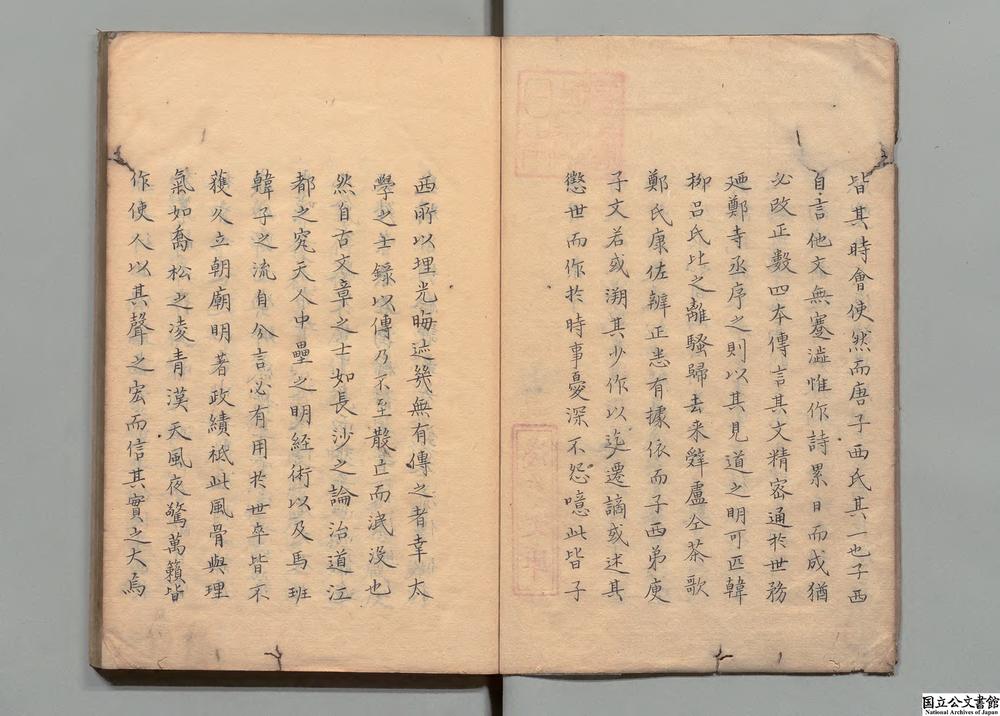 皆其時會使然而唐子西氏其一也子西
自言他文無蹇澁惟作詩累日而成猶
必改正數四本傳言其文精密通於世務
廼鄭寺丞序之則以其見道之明可匹韓
柳呂氏比之離騷歸去来辤盧仝茶歌
鄭氏康佐辨正悉有據依而子西弟庚
子文若或溯其少作以迄遷謫或述其
懲世而作於時事憂深不怨噫此皆子
西所以埋光晦迹幾無有傳之者幸太
學之士錄以傳乃不至散亡而泯没也
然自古文章之士如長沙之論治道江
都之究天人中壘之明經術以及馬班
韓子之流自分言必有用於世卒皆不
獲久立朝廟明著政績祗此風骨與理
氣如喬松之凌青漢天風夜驚萬籟皆
作使人以其聲之宏而信其實之大焉
国立公文書館
National Archives of Japan